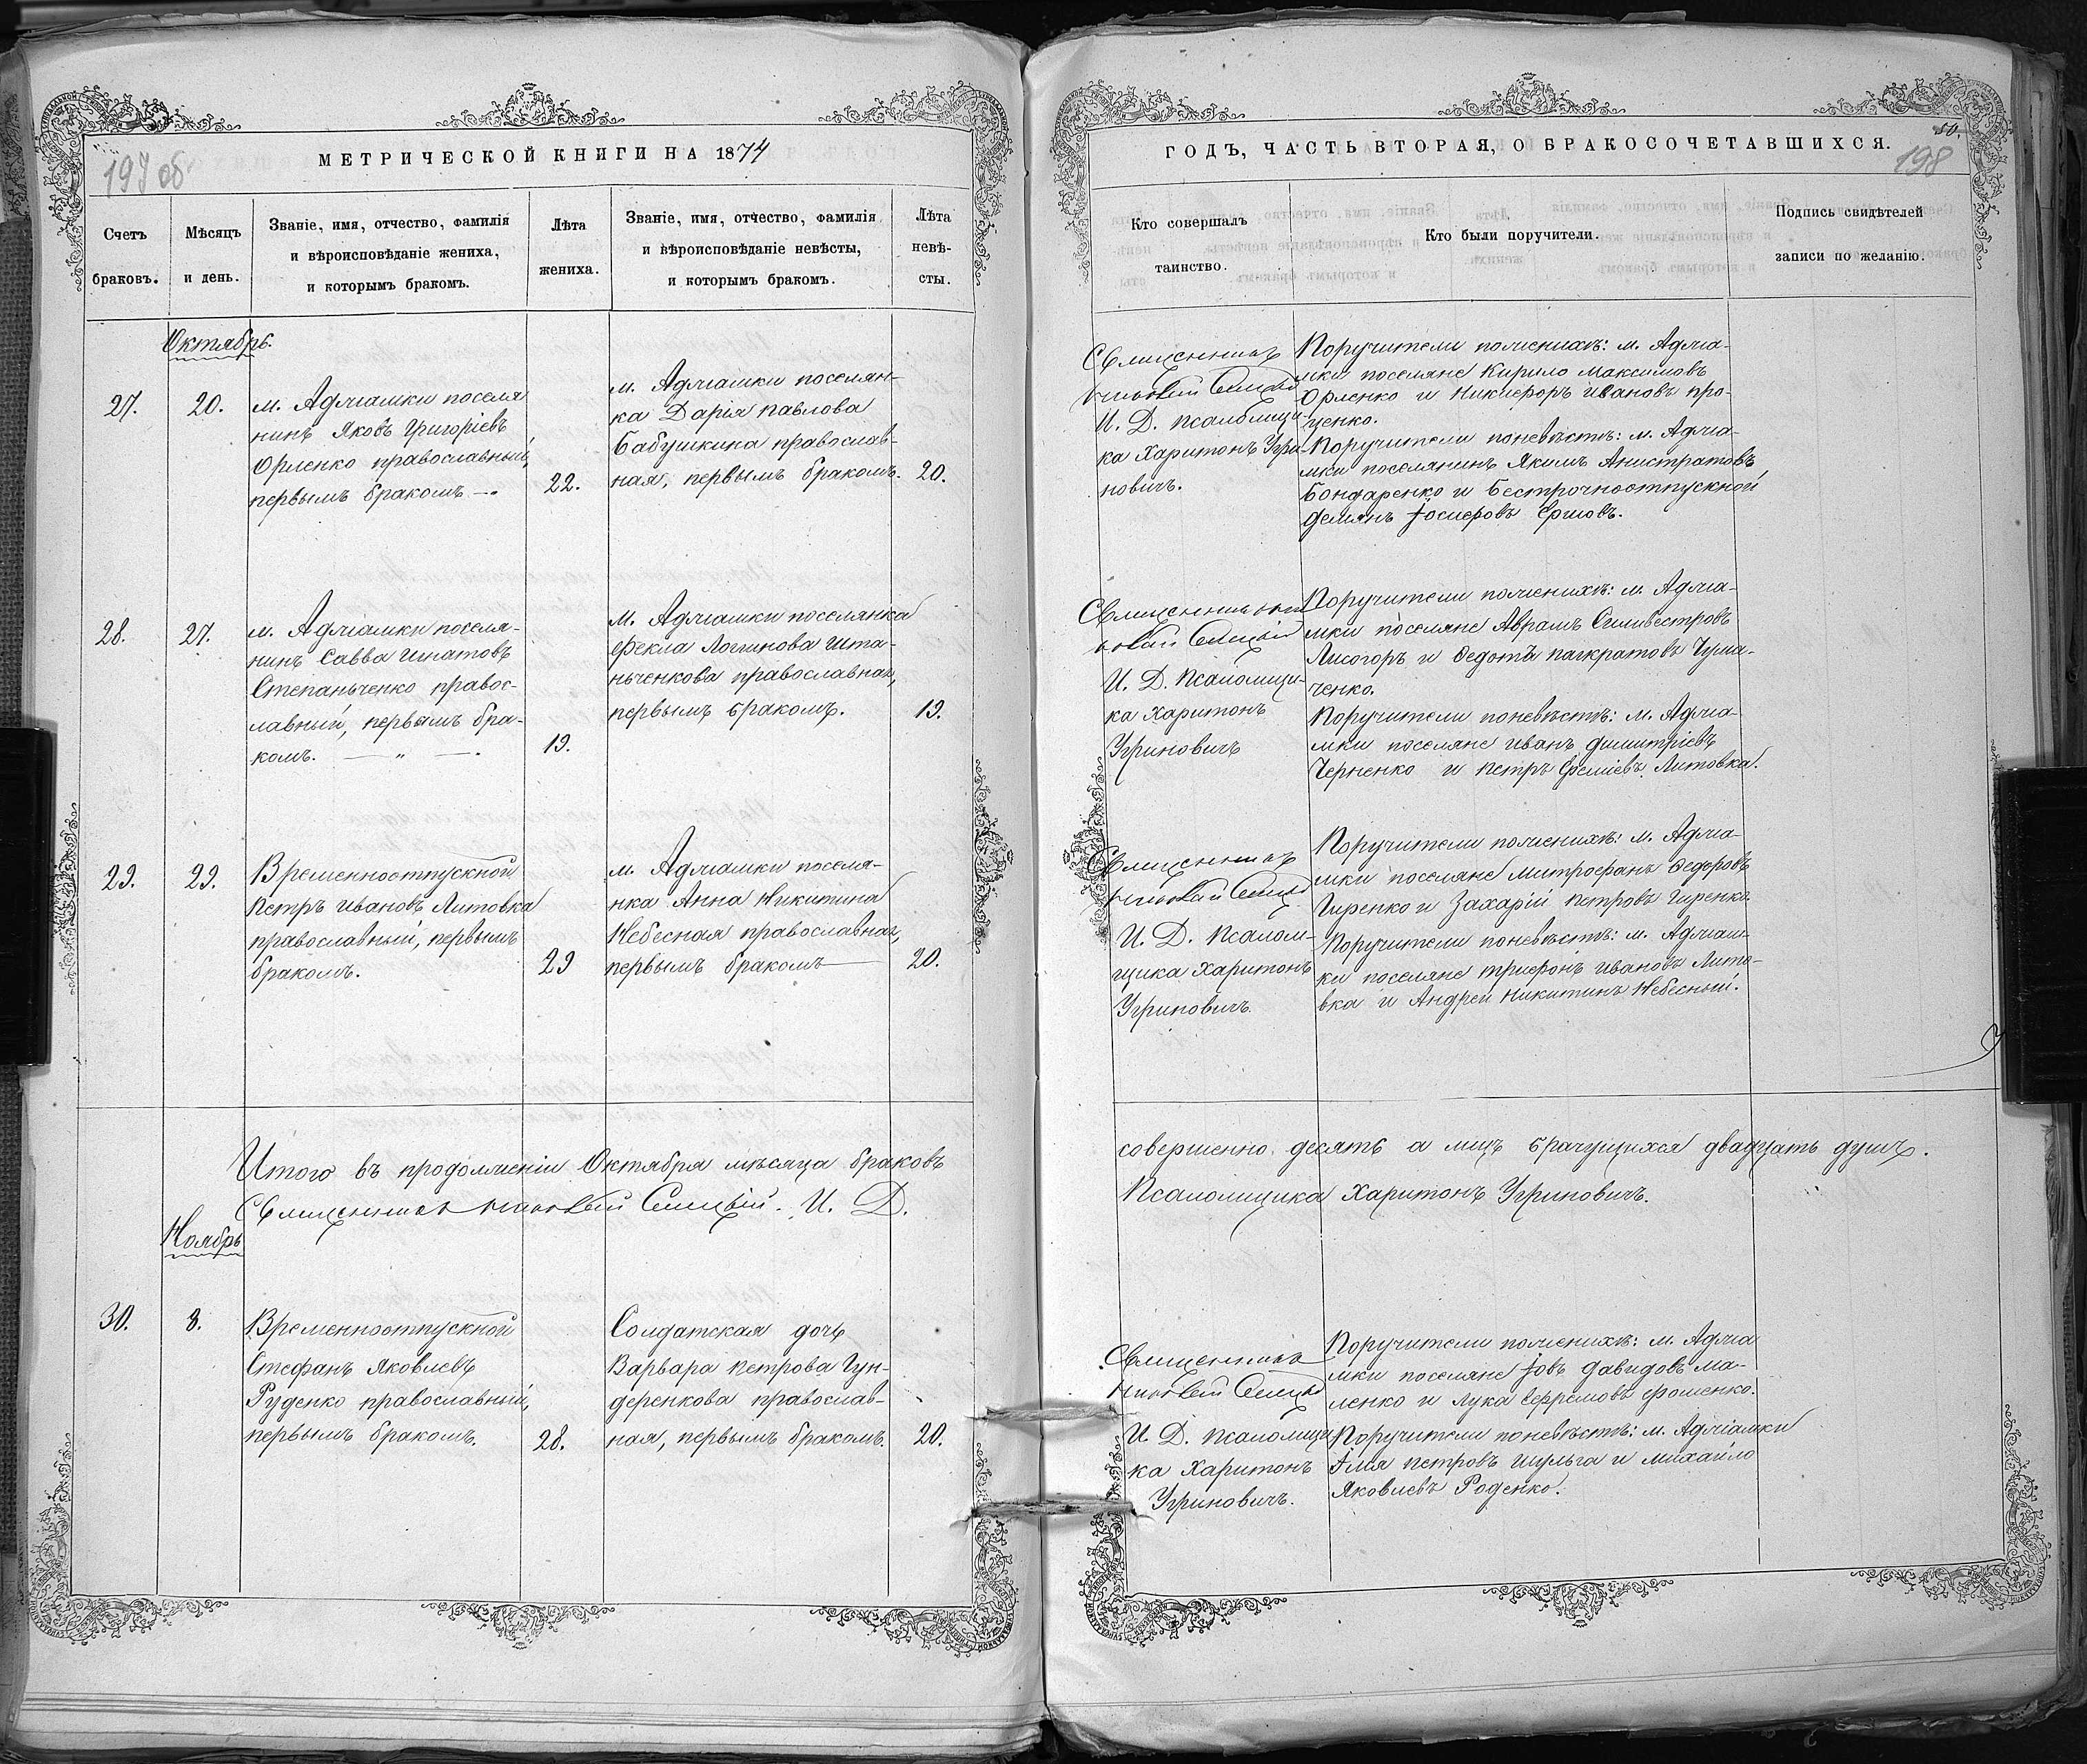 197 об.
МЕТРИЧЕСКОЙ КНИГИ НА 1874
Счетъ браковъ.
Мѣсяцъ и день.
Званіе, имя, отчество, фамилія
и вѣроисповѣданіе жениха,
и которымъ бракомъ.
Лѣта жениха.
Званіе, имя, отчество, фамилія
и вѣроисповѣданіе невѣсты,
и которымъ бракомъ.
Лѣта невѣ-
сты.
Октябрь.
27.
20.
м. Аджамки поселя
нинъ Яковъ Григоріевъ
Орленко православный,
первымъ бракомъ —.
22.
м. Аджамки поселян-
ка Дарія Павлова
Бабушкина православ-
ная, первымъ бракомъ.
20.
28.
27.
м. Аджамки поселя-
нинъ Савва Игнатовъ
Степаньченко правос-
лавный, первымъ бра-
комъ. — " —.
19.
м. Аджамки поселянка
Фекла Логинова Шта-
ньченкова православная,
первымъ бракомъ.
19.
29.
29.
Временноотпускной
Петръ Ивановъ Литовка
православный, первымъ
бракомъ.
29
м. Аджамки поселя-
нка Анна Никитина
Небесная православная,
первымъ бракомъ
20.
Итого въ продолженіи Октября мѣсяца браковъ
Священникъ Сицкій. И. Д.
Ноябрь
30.
8.
Временноотпускной
Стефанъ Яковлевъ
Руденко православный,
первымъ бракомъ.
28.
Солдатская дочь
Варвара Петрова Гун-
деренкова православ-
ная, первымъ бракомъ.
20.
50.
198
ГОДЪ, ЧАСТЬ ВТОРАЯ, О БРАКОСОЧЕТАВШИХСЯ.
Кто совершалъ
таинство.
Кто были поручители.
Подпись свидѣтелей
записи по желанію.
Священникъ
И. Д. псаломщи-
ка Харитонъ Угри
новичъ.
Поручители по женихѣ: м. Аджа-
мки поселяне Кирило Максимовъ
Орленко и Никифоръ Ивановъ Про-
ценко.
Поручители по невѣстѣ: м. Аджа-
мки поселянинъ Якимъ Анистратовъ
Бондаренко и Безсрочноотпускной
Демянъ Іосифовъ Ершовъ.
Священникъ
И. Д. Псаломщи-
ка Харитонъ
Угриновичъ
Поручители по женихѣ: м. Аджа-
мки поселяне Аврамъ Сильвестровъ
Лисогоръ и Федотъ Панкратовъ Чума-
ченко.
Поручители по невѣстѣ: м. Аджа-
мки поселяне Иванъ Димитріевъ
Черненко и Петръ Литовка.
Священникъ
И. Д. Псалом-
щика Харитонъ
Угриновичъ.
Поручители по женихѣ: м. Аджа-
мки поселяне Митрофанъ Федоровъ
Гиренко и Захарій Петровъ Гиренко.
Поручители по невѣстѣ: м. Аджам-
ки поселяне Трифонъ Ивановъ Лито-
вка и Андрей Никитинъ Небесный.
совершенно десять а лицъ брачущихся двадцать душъ.
Псаломщика Харитонъ Угриновичъ.
Священникъ
И. Д. Псаломщи
ка Харитонъ
Угриновичъ.
Поручители по женихѣ: м. Аджа
мки поселяне Іовъ Давидовъ Ма-
ленко и Лука Ефремовъ Фоменко.
Поручители по невѣстѣ: м. Аджамки
Илія Петровъ Шульга и Михайло
Яковлевъ Роденко.